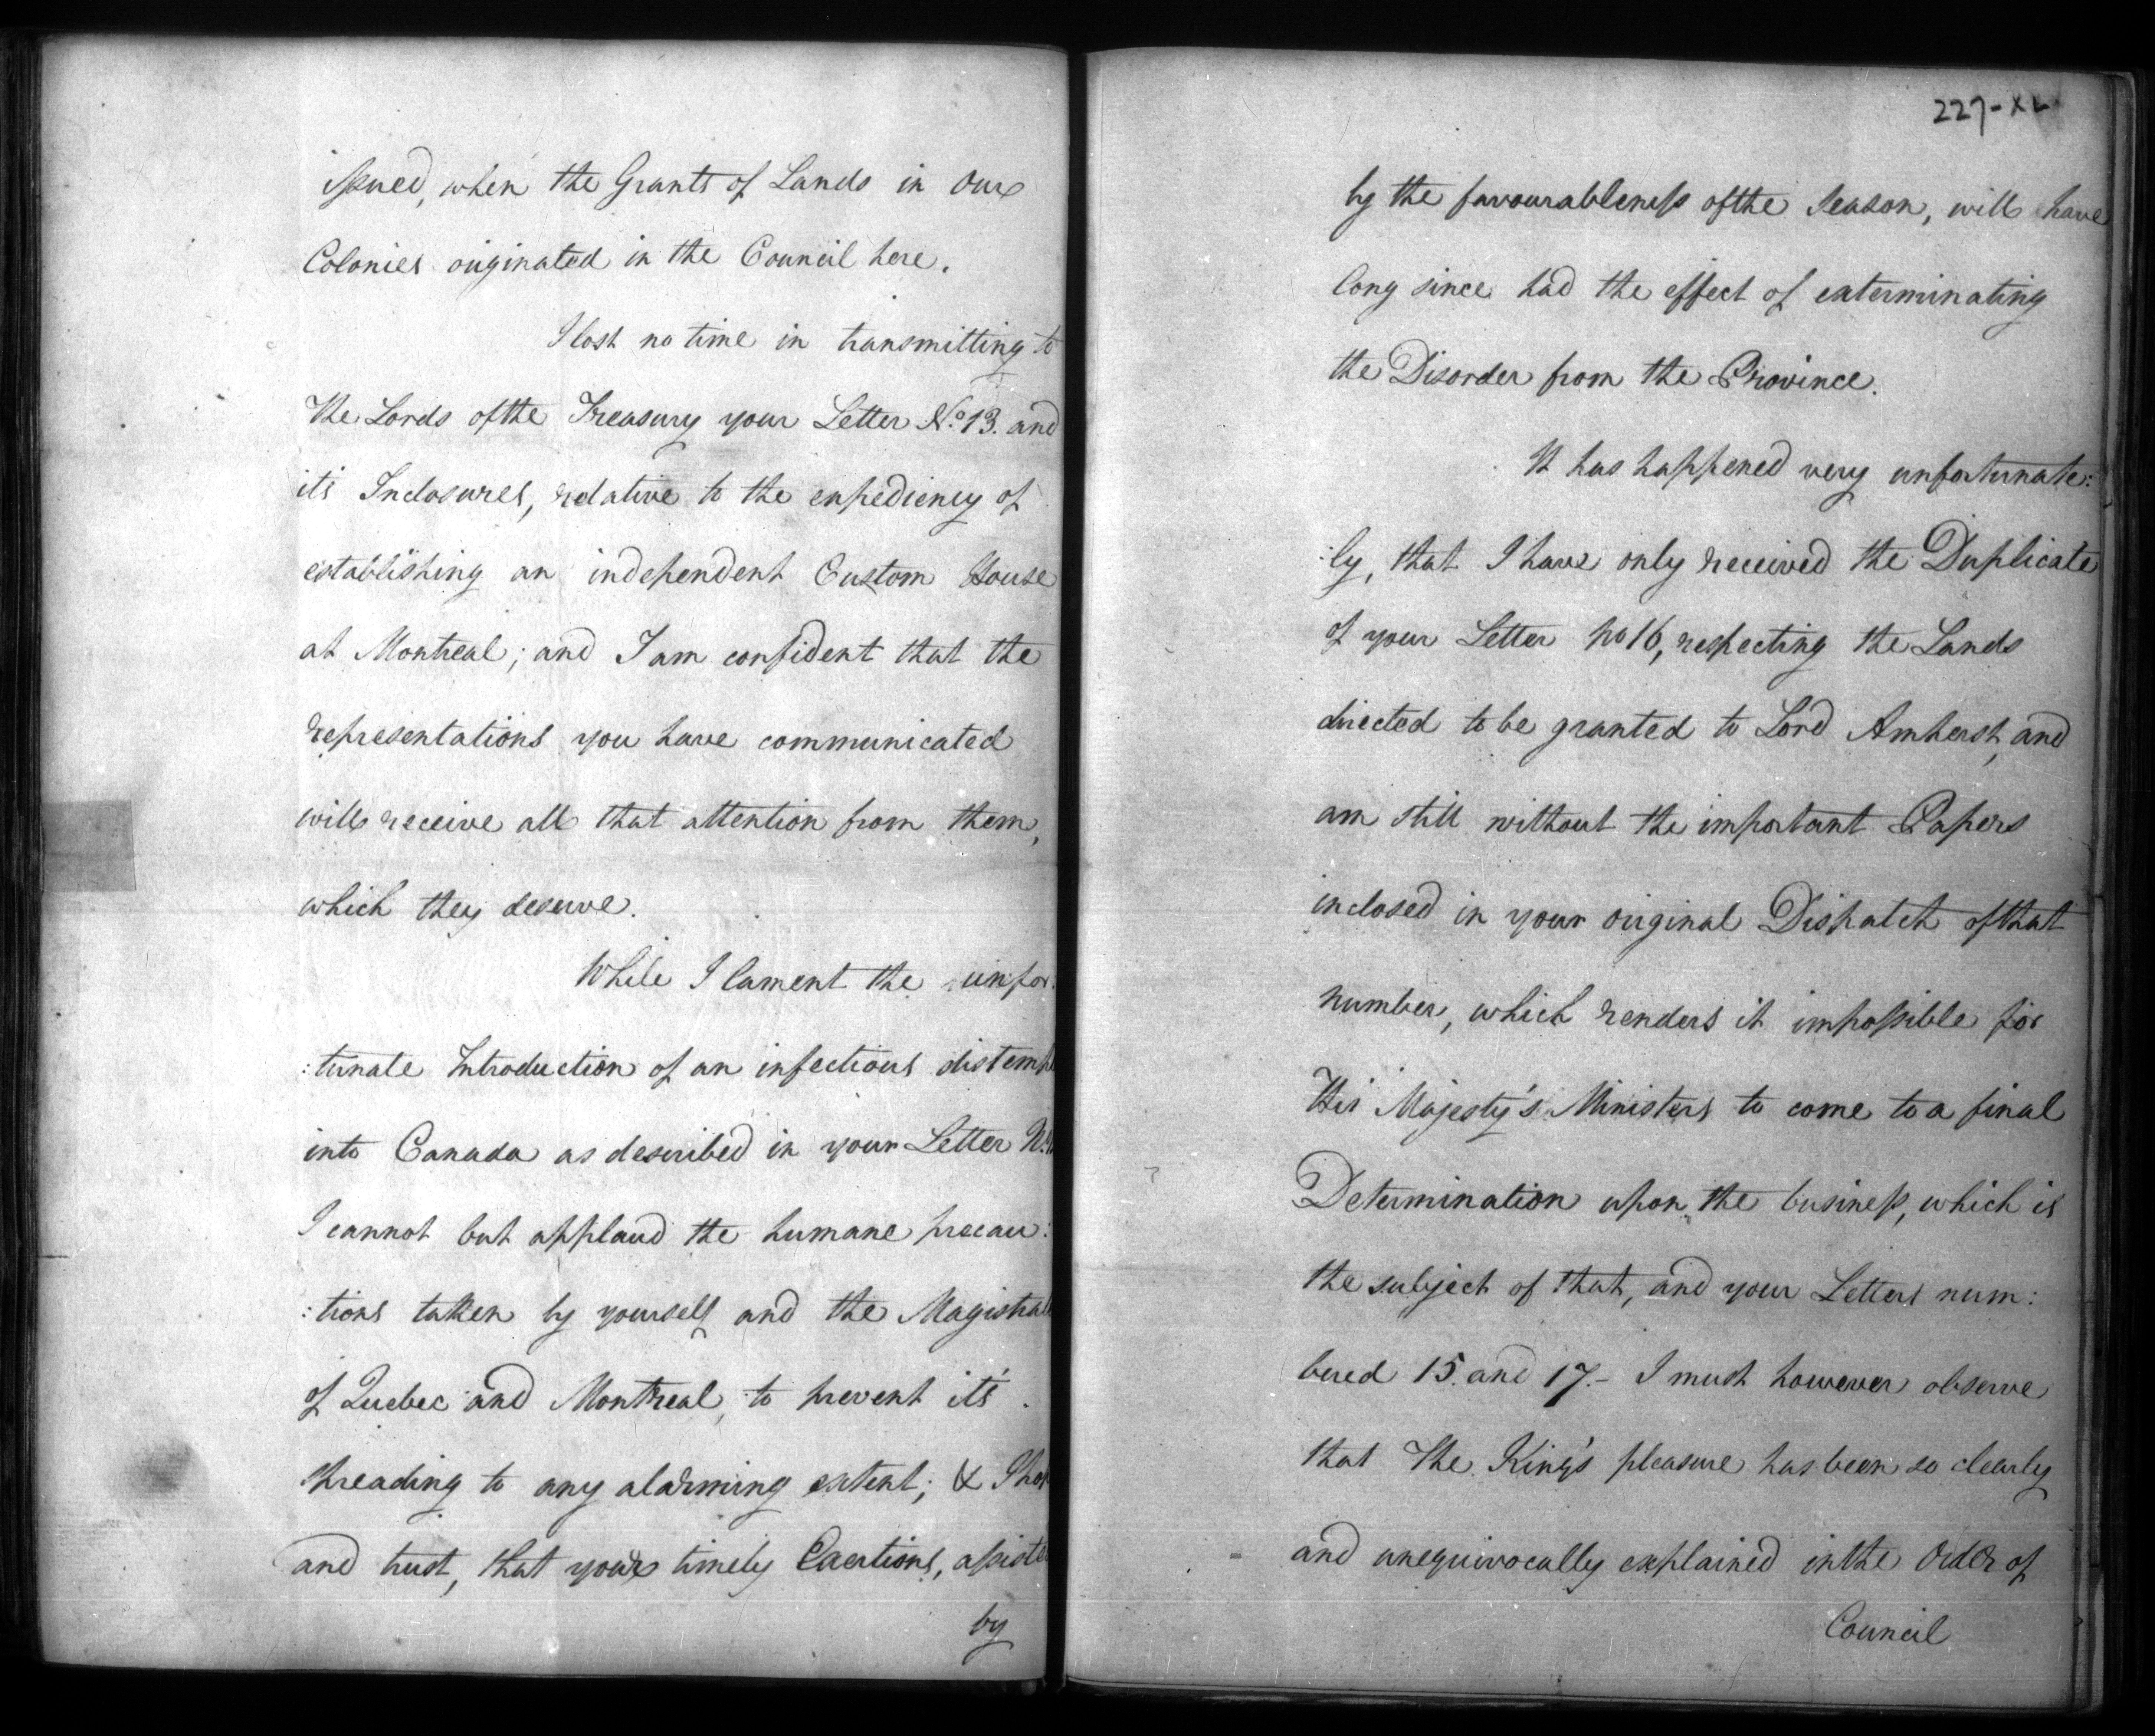 issued, when the Grants of Lands in Our
Colonies originated in the Council here.
I lost no time in transmitting to
the Lords of the Treasury your Letter No. 13. and
it's Inclosures, relative to the expediency of
establishing an independent Custom House
at Montreal; and I am confident that the
representations you have communicated
will receive all that attention from them,
which they deserve.
While I lament the unfor:
:tunate Introduction of an infectious distem
into Canada as described in your Letter No.
I cannot but applaud the humane precau:
:tions taken by yourself and the Magistra
of Quebec and Montreal, to prevent it's
spreading to any alarming extent; & I
and trust, that your timely Exertions, assiste
by
227-XL
by the favourableness of the season, will have
long since had the effect of exterminating
the Disorder from the Province.
It has happened very unfortunate:
:ly, that I have only received the Duplicate
of your Letter No 16, respecting the Lands
directed to be granted to Lord Amherst, and
am still without the important Papers
inclosed in your original Dispatch of that
number, which renders it impossible for
His Majesty's Ministers to come to a final
Determination upon the business, which is
the subject of that, and your Letters num:
bered 15. and 17.- I must however observe
that The King's pleasure has been so clearly
and unequivocally explained in the Order of
Council